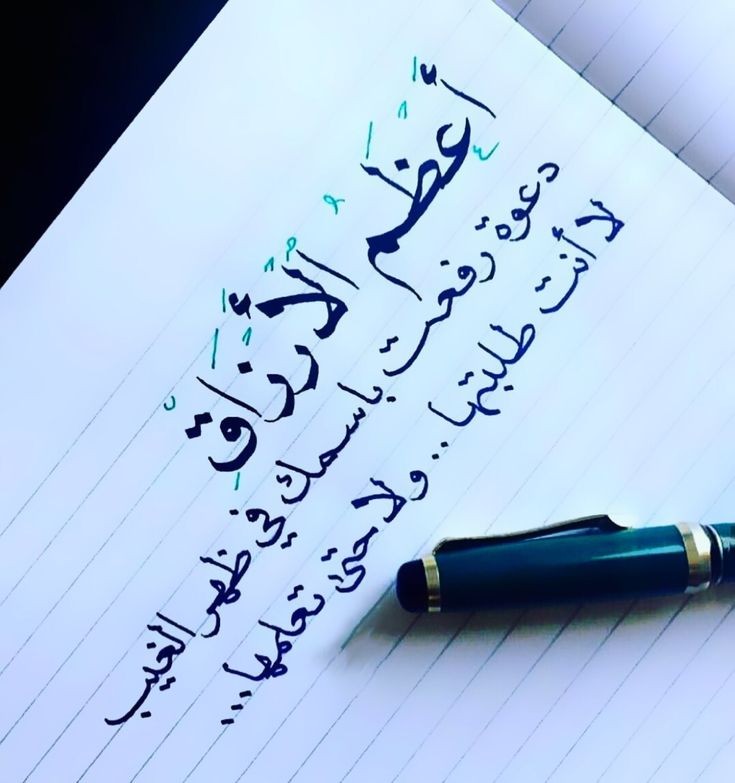 أَعظَم الأَرزَاقِ
دعوة رفعت باسمك في ظهر الغيب
لا أنت طلبتها .. ولا حتى تعلمها ...